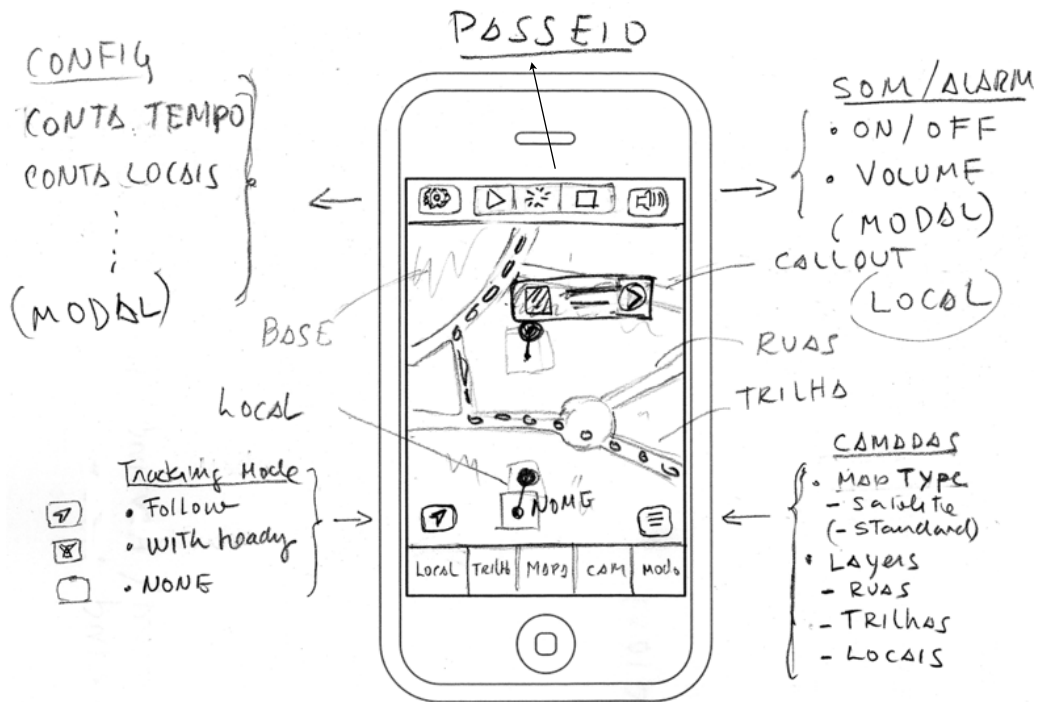 PASSEIO
CONFIG
CONTA TEMPO
CONTA LOCAIS
(MODAL)
SOM/ALARM
• ON/OFF
• VOLUME
(MODAL)
CALLOUT
LOCAL
BASE
RUAS
TRILHA
LOCAL
NOME
Tracking Mode
• Follow
• With heady
• NONE
CAMADAS
• MAP TYPE
- Satelite
(- Standard)
• Layers
- RUAS
- TRILHAS
- LOCAIS
LOCAL TRILHA MAPA CAM MODO